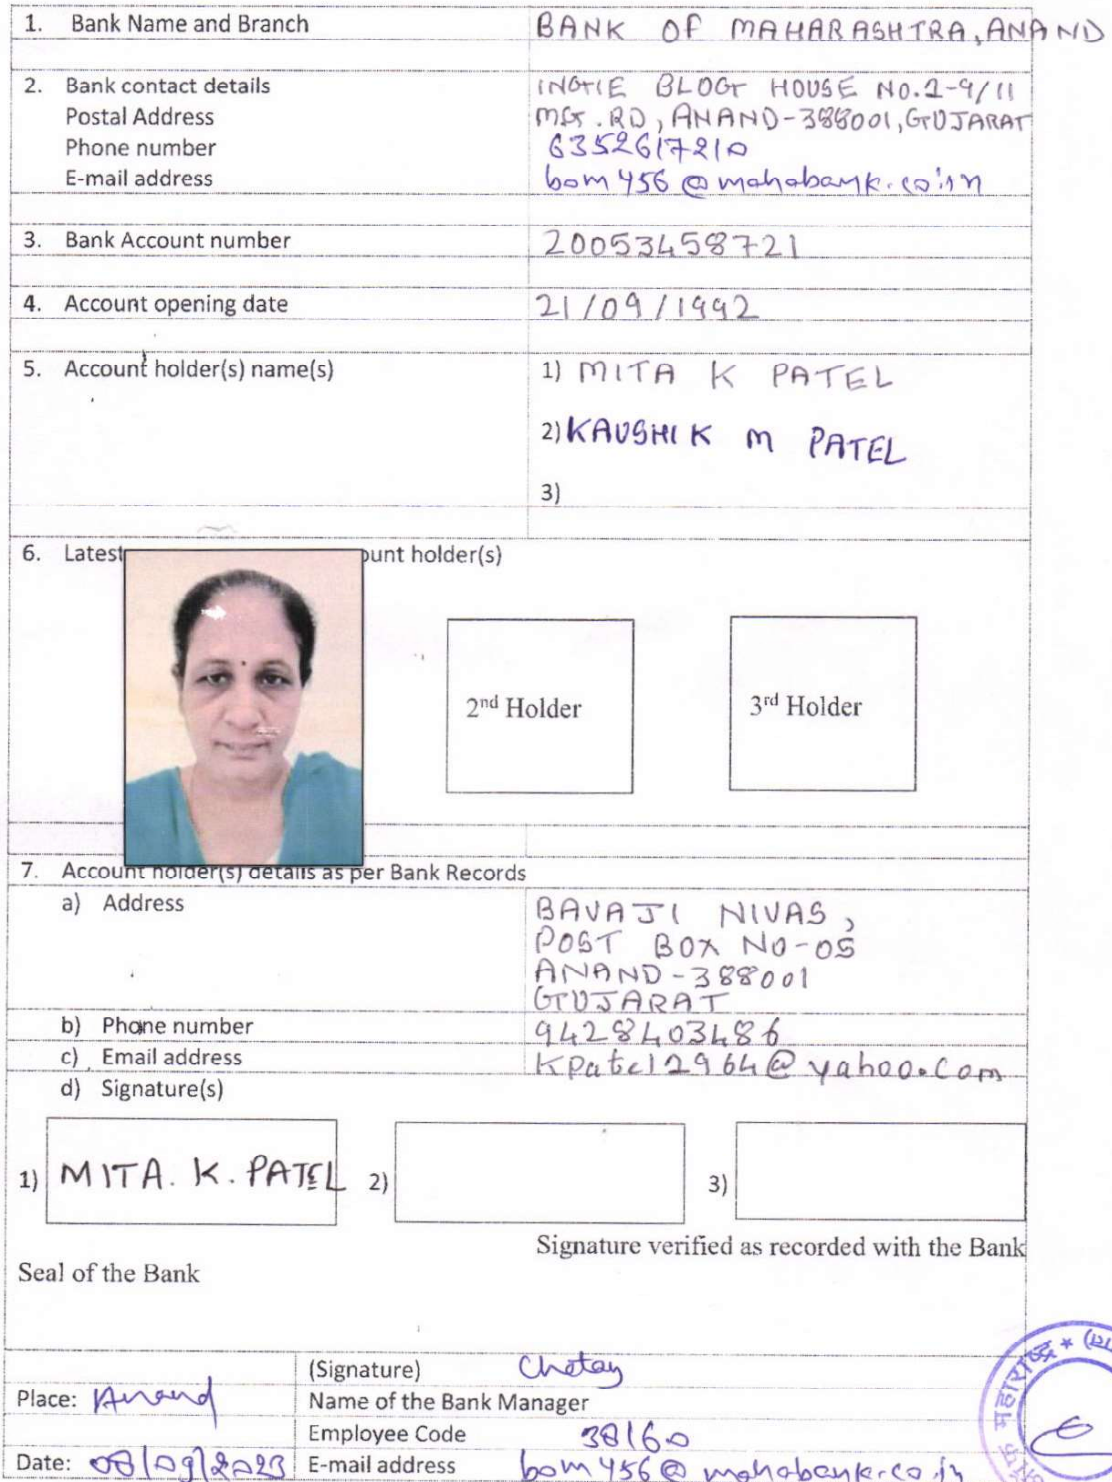 1. Bank Name and Branch BANK OF MAHARASHTRA, ANAND
2. Bank contact details INGIE BLOG HOUSE NO.2-9/11
Postal Address MG. RD, ANAND-388001, GUJARAT
Phone number 6352617210
E-mail address bom456@mahabank.co.in
3. Bank Account number 20053458721
4. Account opening date 21/09/1992
5. Account holder(s) name(s) 1) MITA K PATEL
2) KAUSHIK M PATEL
3)
6. Latest ount holder(s)
2nd Holder
3rd Holder
7. Account holder(s) details as per Bank Records
a) Address BAVAJI NIVAS,
POST BOX NO-05
ANAND-388001
GUJARAT
b) Phone number 9428403486
c) Email address kpatel2964@yahoo.com
d) Signature(s)
1) MITA. K. PATEL 2) 3)
Signature verified as recorded with the Bank
Seal of the Bank
(Signature) Chetan
Place: Anand Name of the Bank Manager
Employee Code 38160
Date: 08/09/2023 E-mail address bom456@mahabank.co.in
महाराष्ट्र